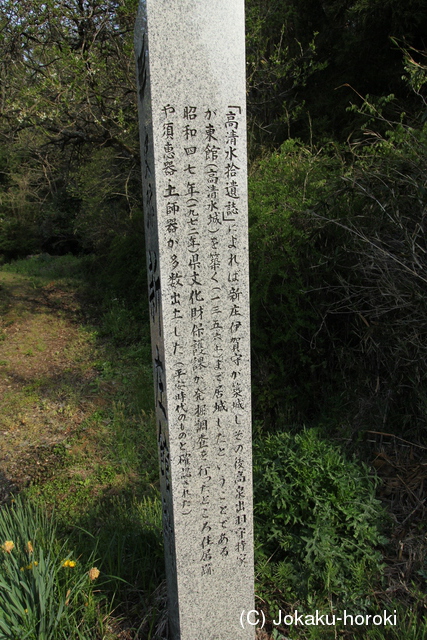 「高清水拾遺誌」によれば新庄伊賀守が築城しその後高泉出羽守持家
が東館(高清水城)を築く(一三五六)まで居城したということである
昭和四七年(一九七二年)県文化財保護課が発掘調査を行ったところ住居跡
や須恵器・土師器が多数出土した(平安時代のものと確認された)
(C) Jokaku-horoki